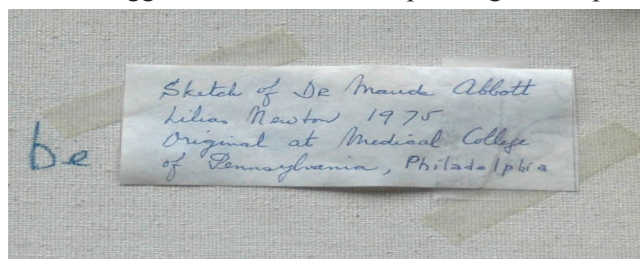 be
Sketch of De Maude Abbott
Lilias Newton 1975
Original at Medical College
of Pennsylvania, Philadelphia